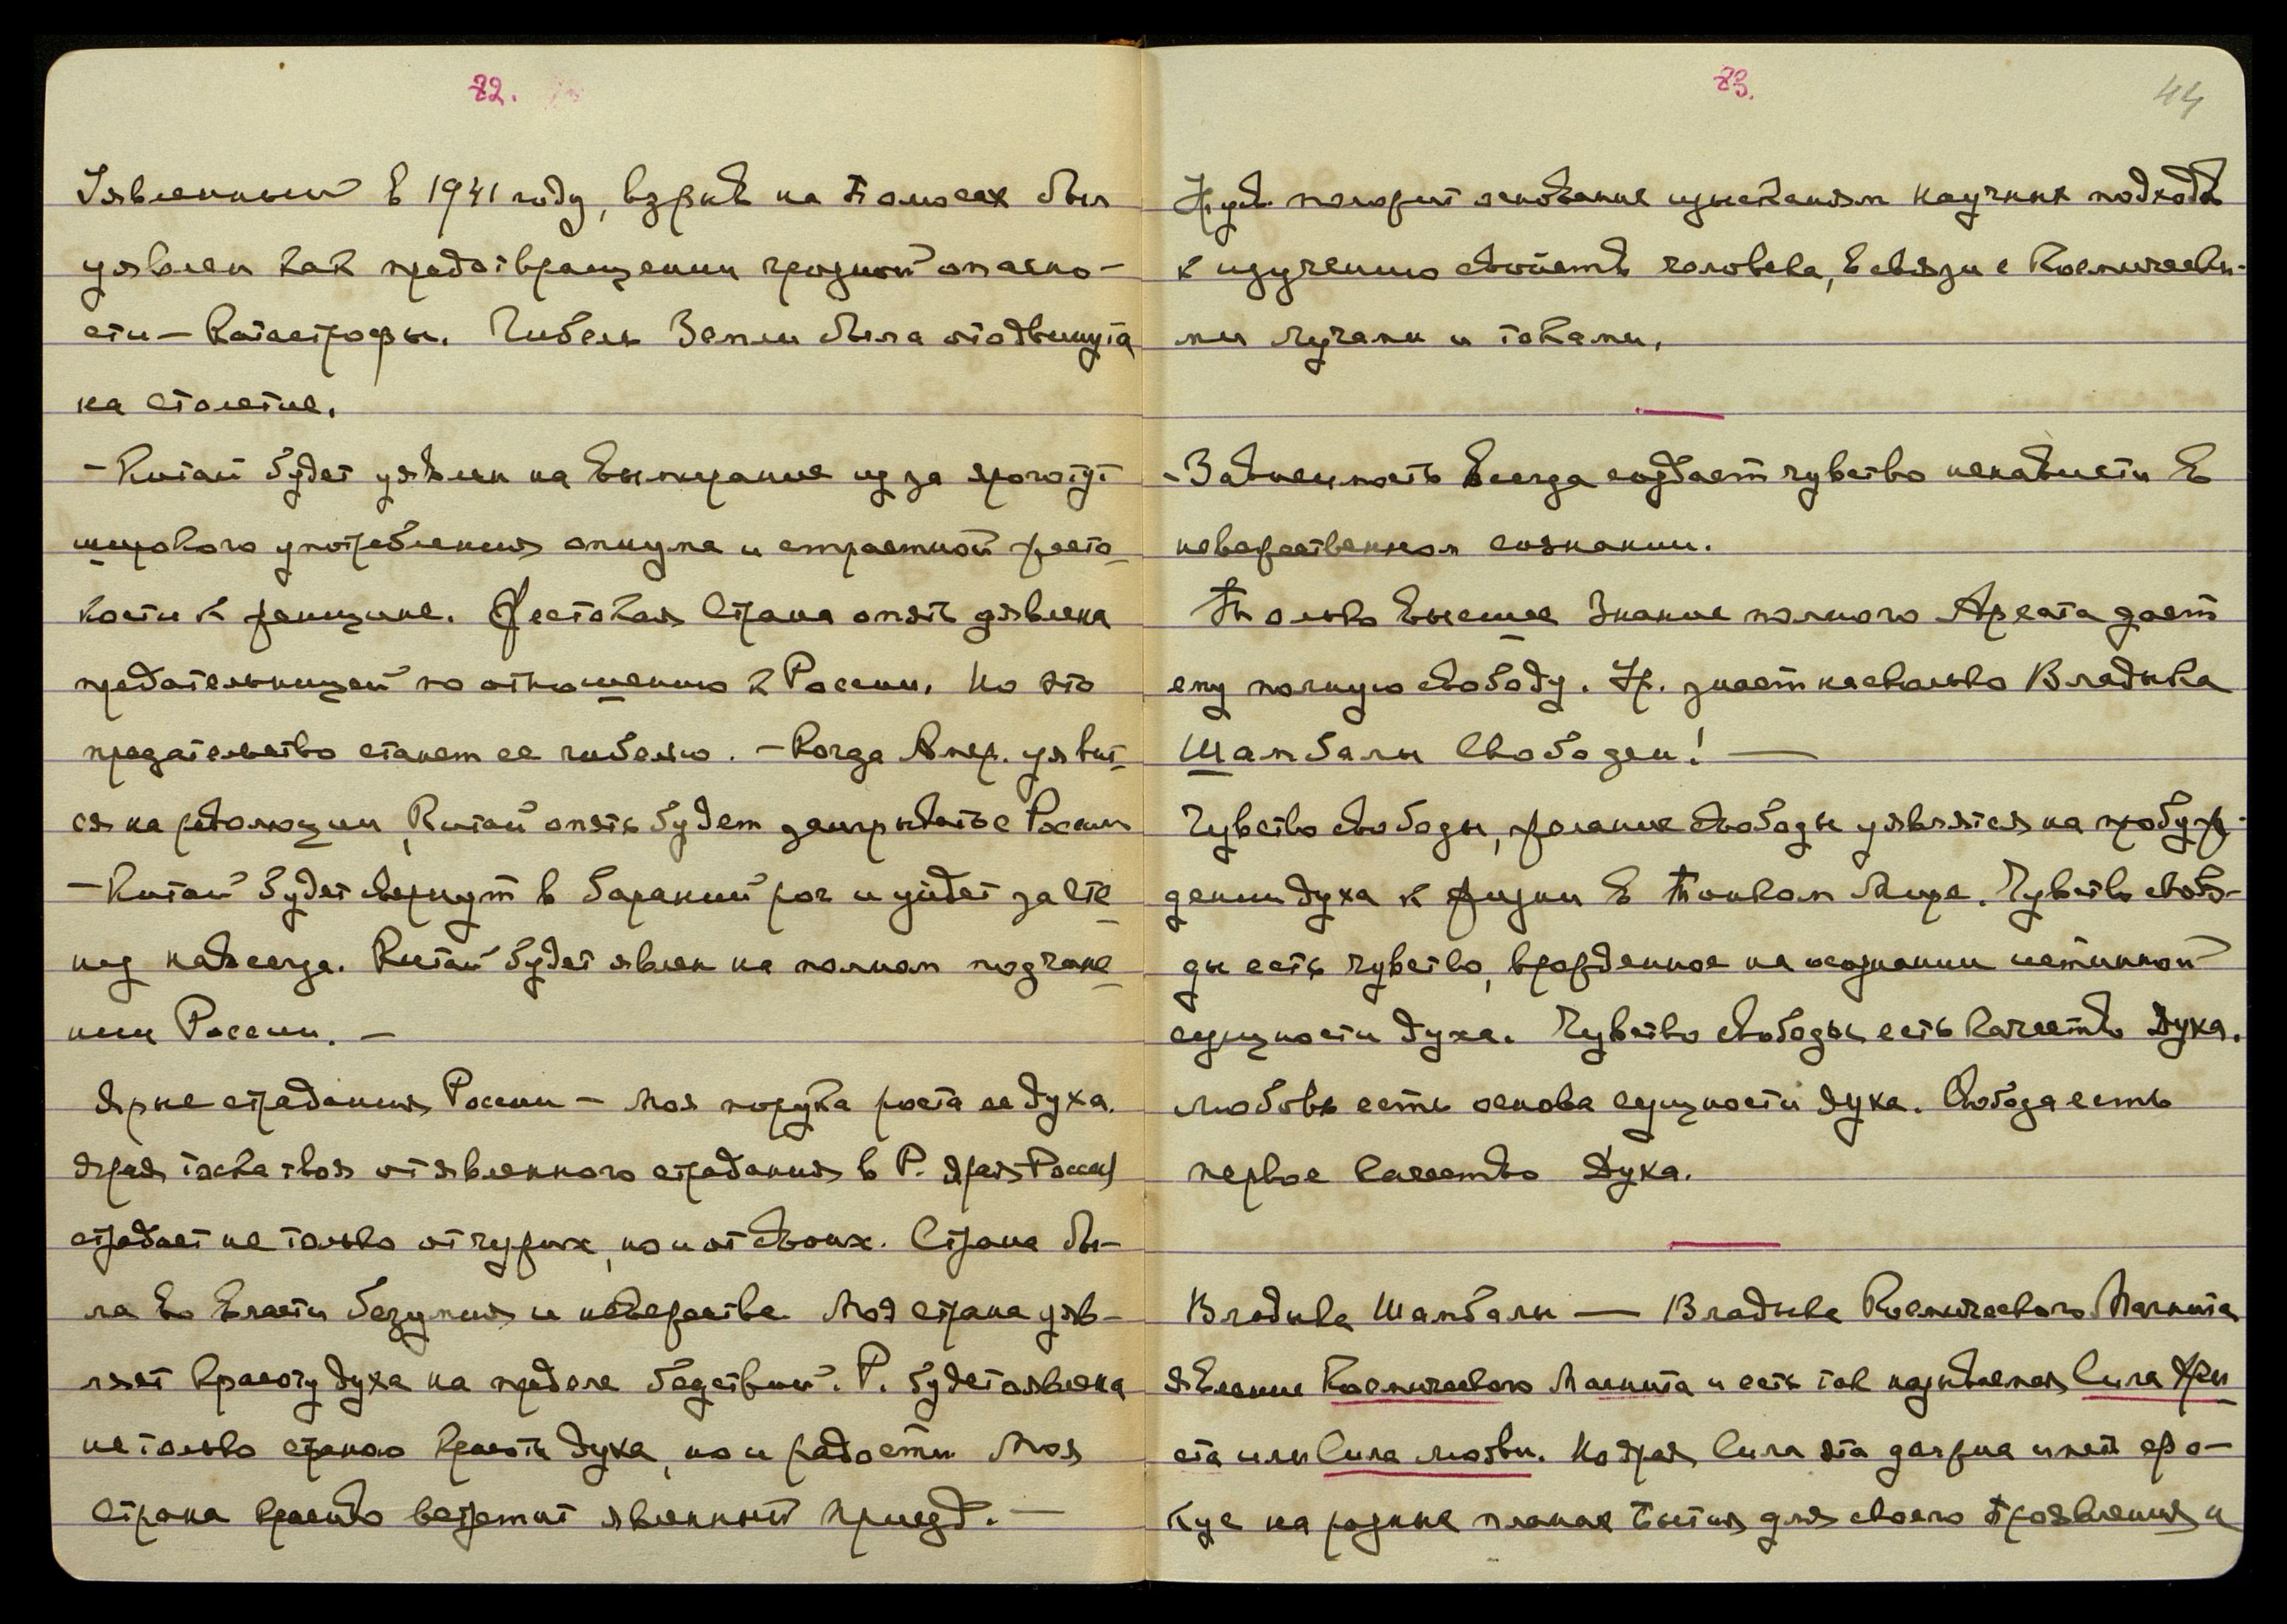 82.
Уявленный в 1941 году, взрыв на Полюсах был
уявлен как предотвращении грозной опасно-
сти – Катастрофы. Гибель Земли была отодвинута
на столетие.
– Китай будет уявлен на вымирание из за
широкого употребления опиума и страстной жесто-
кости к женщине. Жестокая Страна опять уявлена
предательницей по отношению к России. Но это
предательство станет ее гибелью. – Когда Амер. уявит-
ся на революции, Китай опять будет заигрывать с Россией
– Китай будет свернут в бараний рог и уйдет за сте-
ну навсегда. Китай будет явлен на полном подчине-
нии России. –
Ярые страдания России – Моя порука роста ее духа.
Ярая тоска твоя от явленного страдания в Р. Ярая Россия
страдает не только от чужих, но и от своих. Страна бы-
ла во власти безумия и невежества Моя страна уяв-
ляет красоту духа на пределе бедствий. Р. будет явлена
не только страною красоты духа, но и радости Моя
Страна красиво встретит явленный приезд. –
83.
44
Нужд. положит основание изысканиям научных подходов
к изучению свойств человека, в связи с Космически-
ми лучами и токами.
– Зависимость всегда создает чувство ненависти в
невежественном сознании.
Только высшее Знание полного Архата дает
ему полную свободу. Ур. знает насколько Владыка
Шамбалы Свободен! –
Чувство свободы, желание свободы уявляется на пробуж-
дении духа к жизни в Тонком Мире. Чувство свобо-
ды есть чувство, врожденное на осознании истинной
сущности духа. Чувство свободы есть качество Духа.
Любовь есть основа сущности духа. Свобода есть
первое качество Духа.
Владыка Шамбалы — Владыка Космического Магнита
явление Космического Магнита и есть так называемая Сила Хри-
ста или Сила любви. Но ярая Сила эта должна иметь фо-
кус на разных планах Бытия для своего проявления и